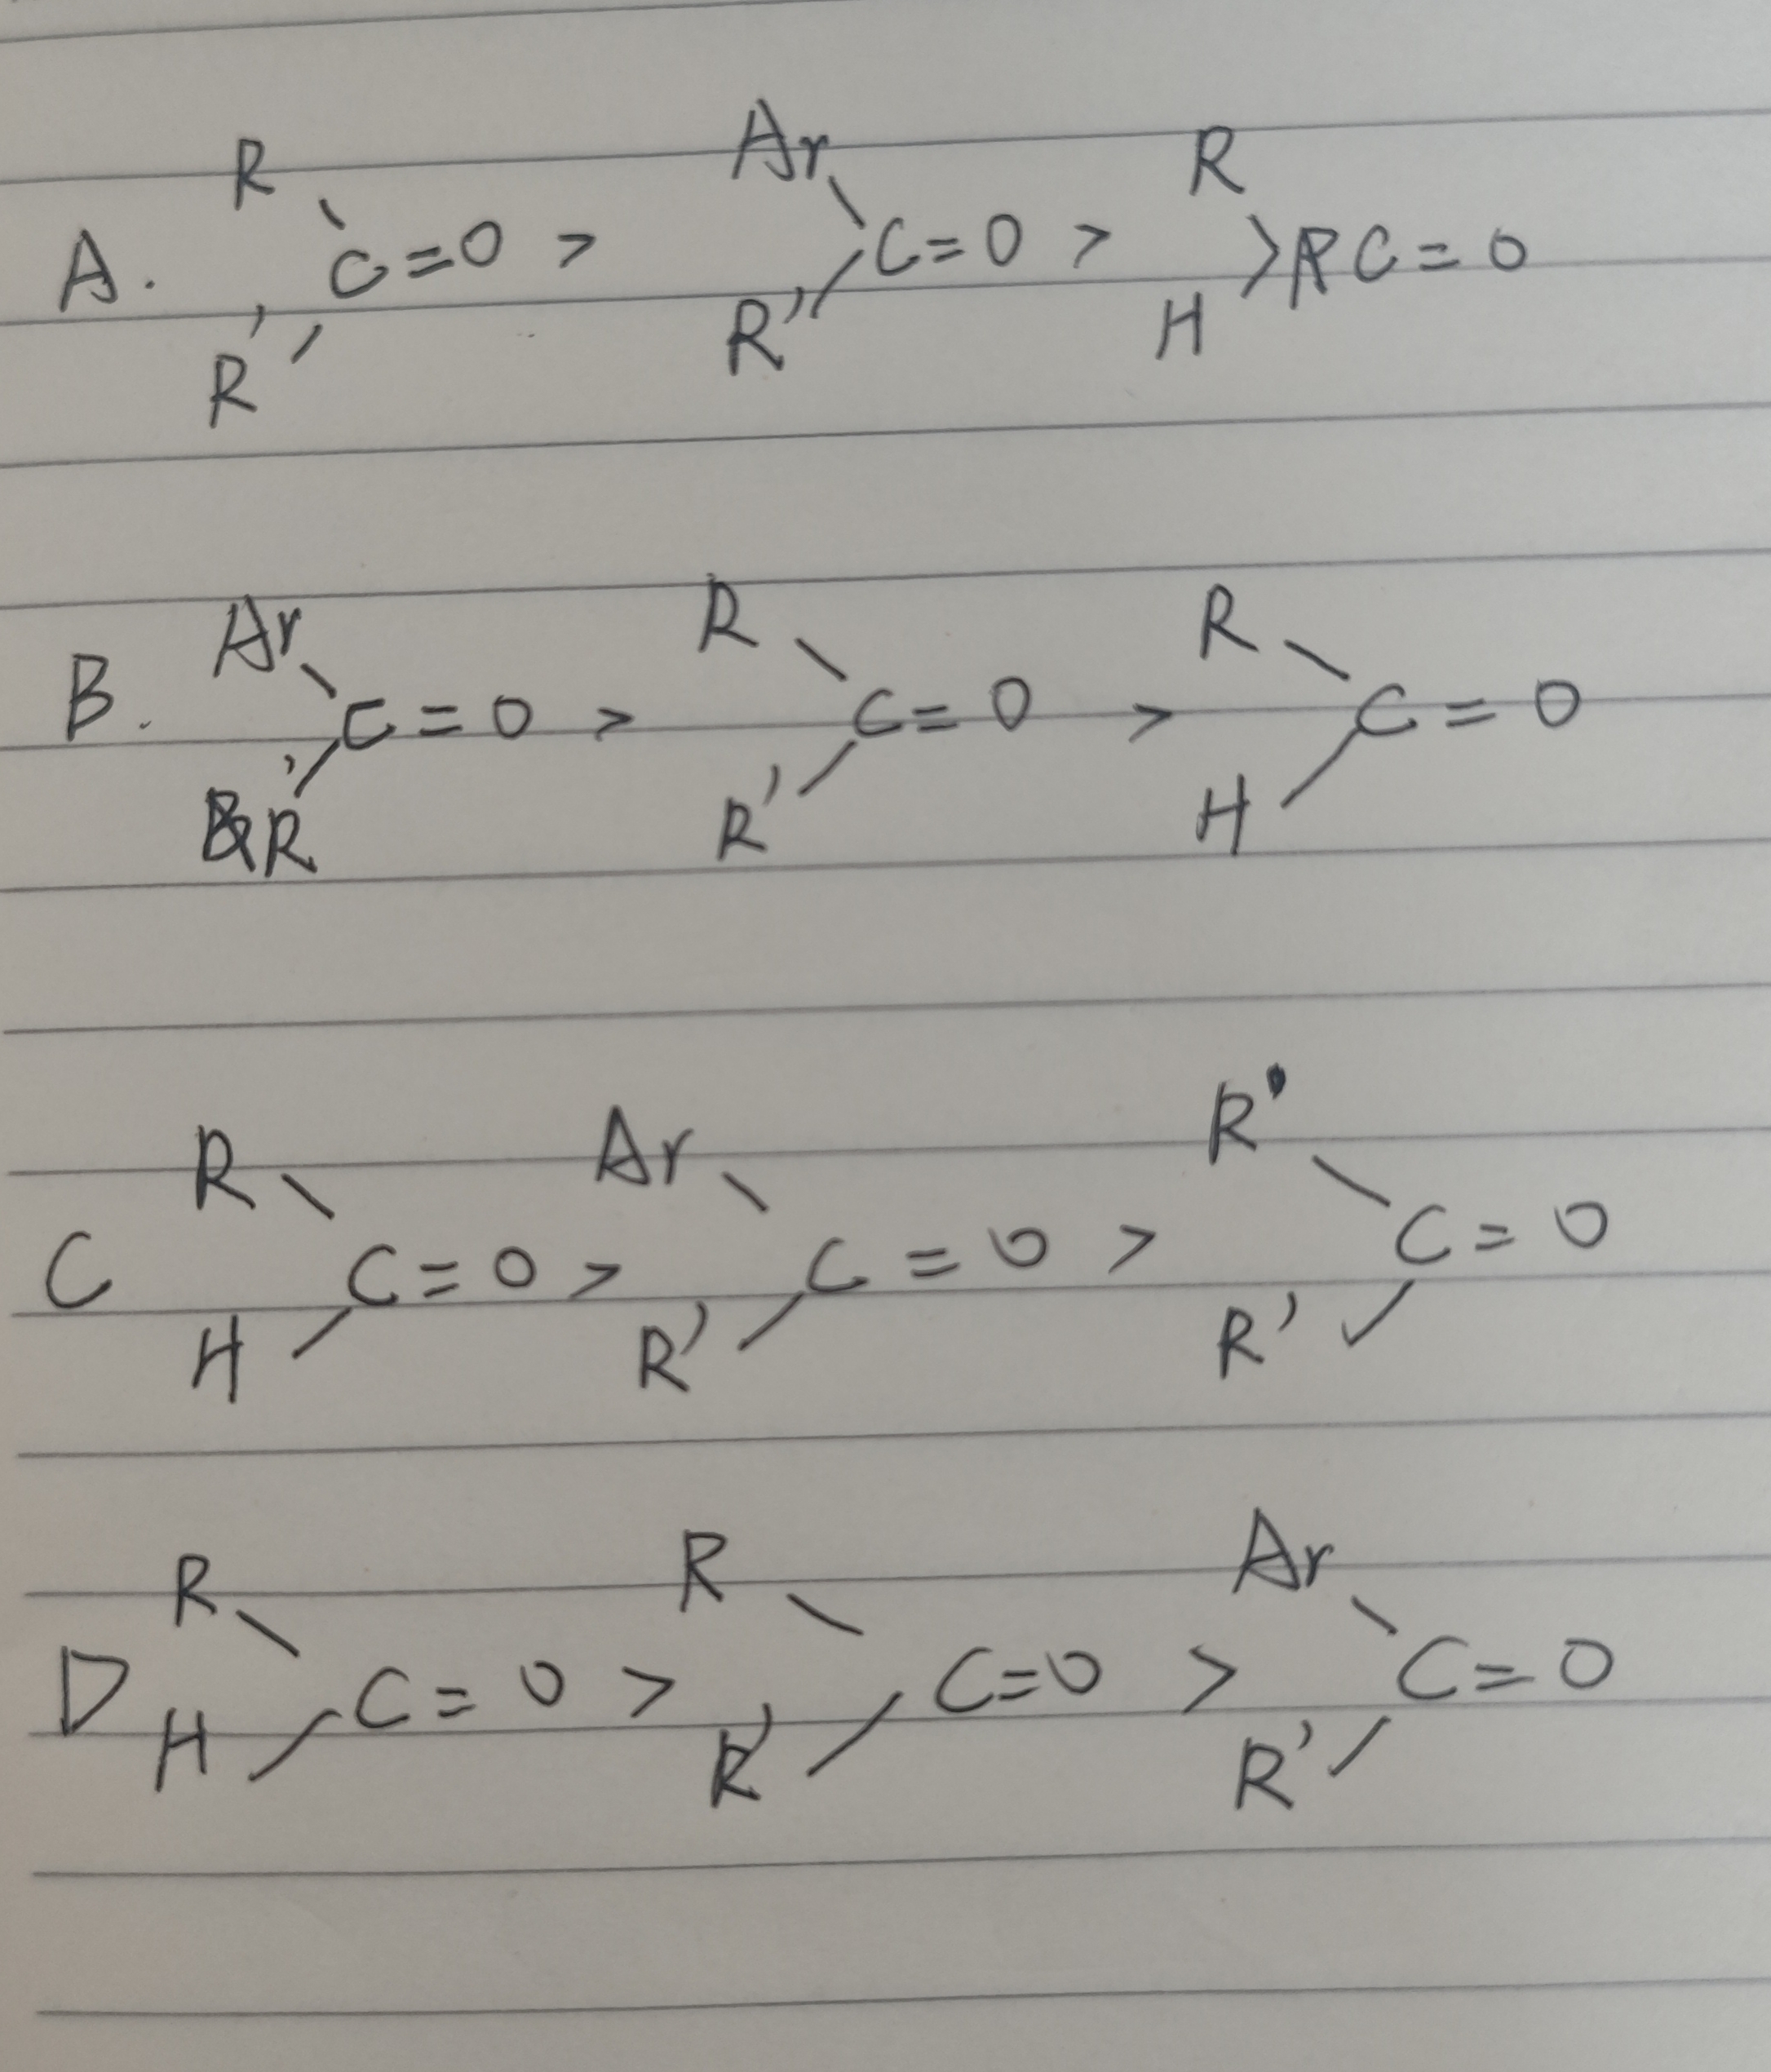 R Ar R
A. C=O > C=O > C=O
R' R' H
Ar R R
B. C=O > C=O > C=O
R' R' H
R Ar R'
C C=O > C=O > C=O
H R' R'
R R Ar
D C=O > C=O > C=O
H R' R'